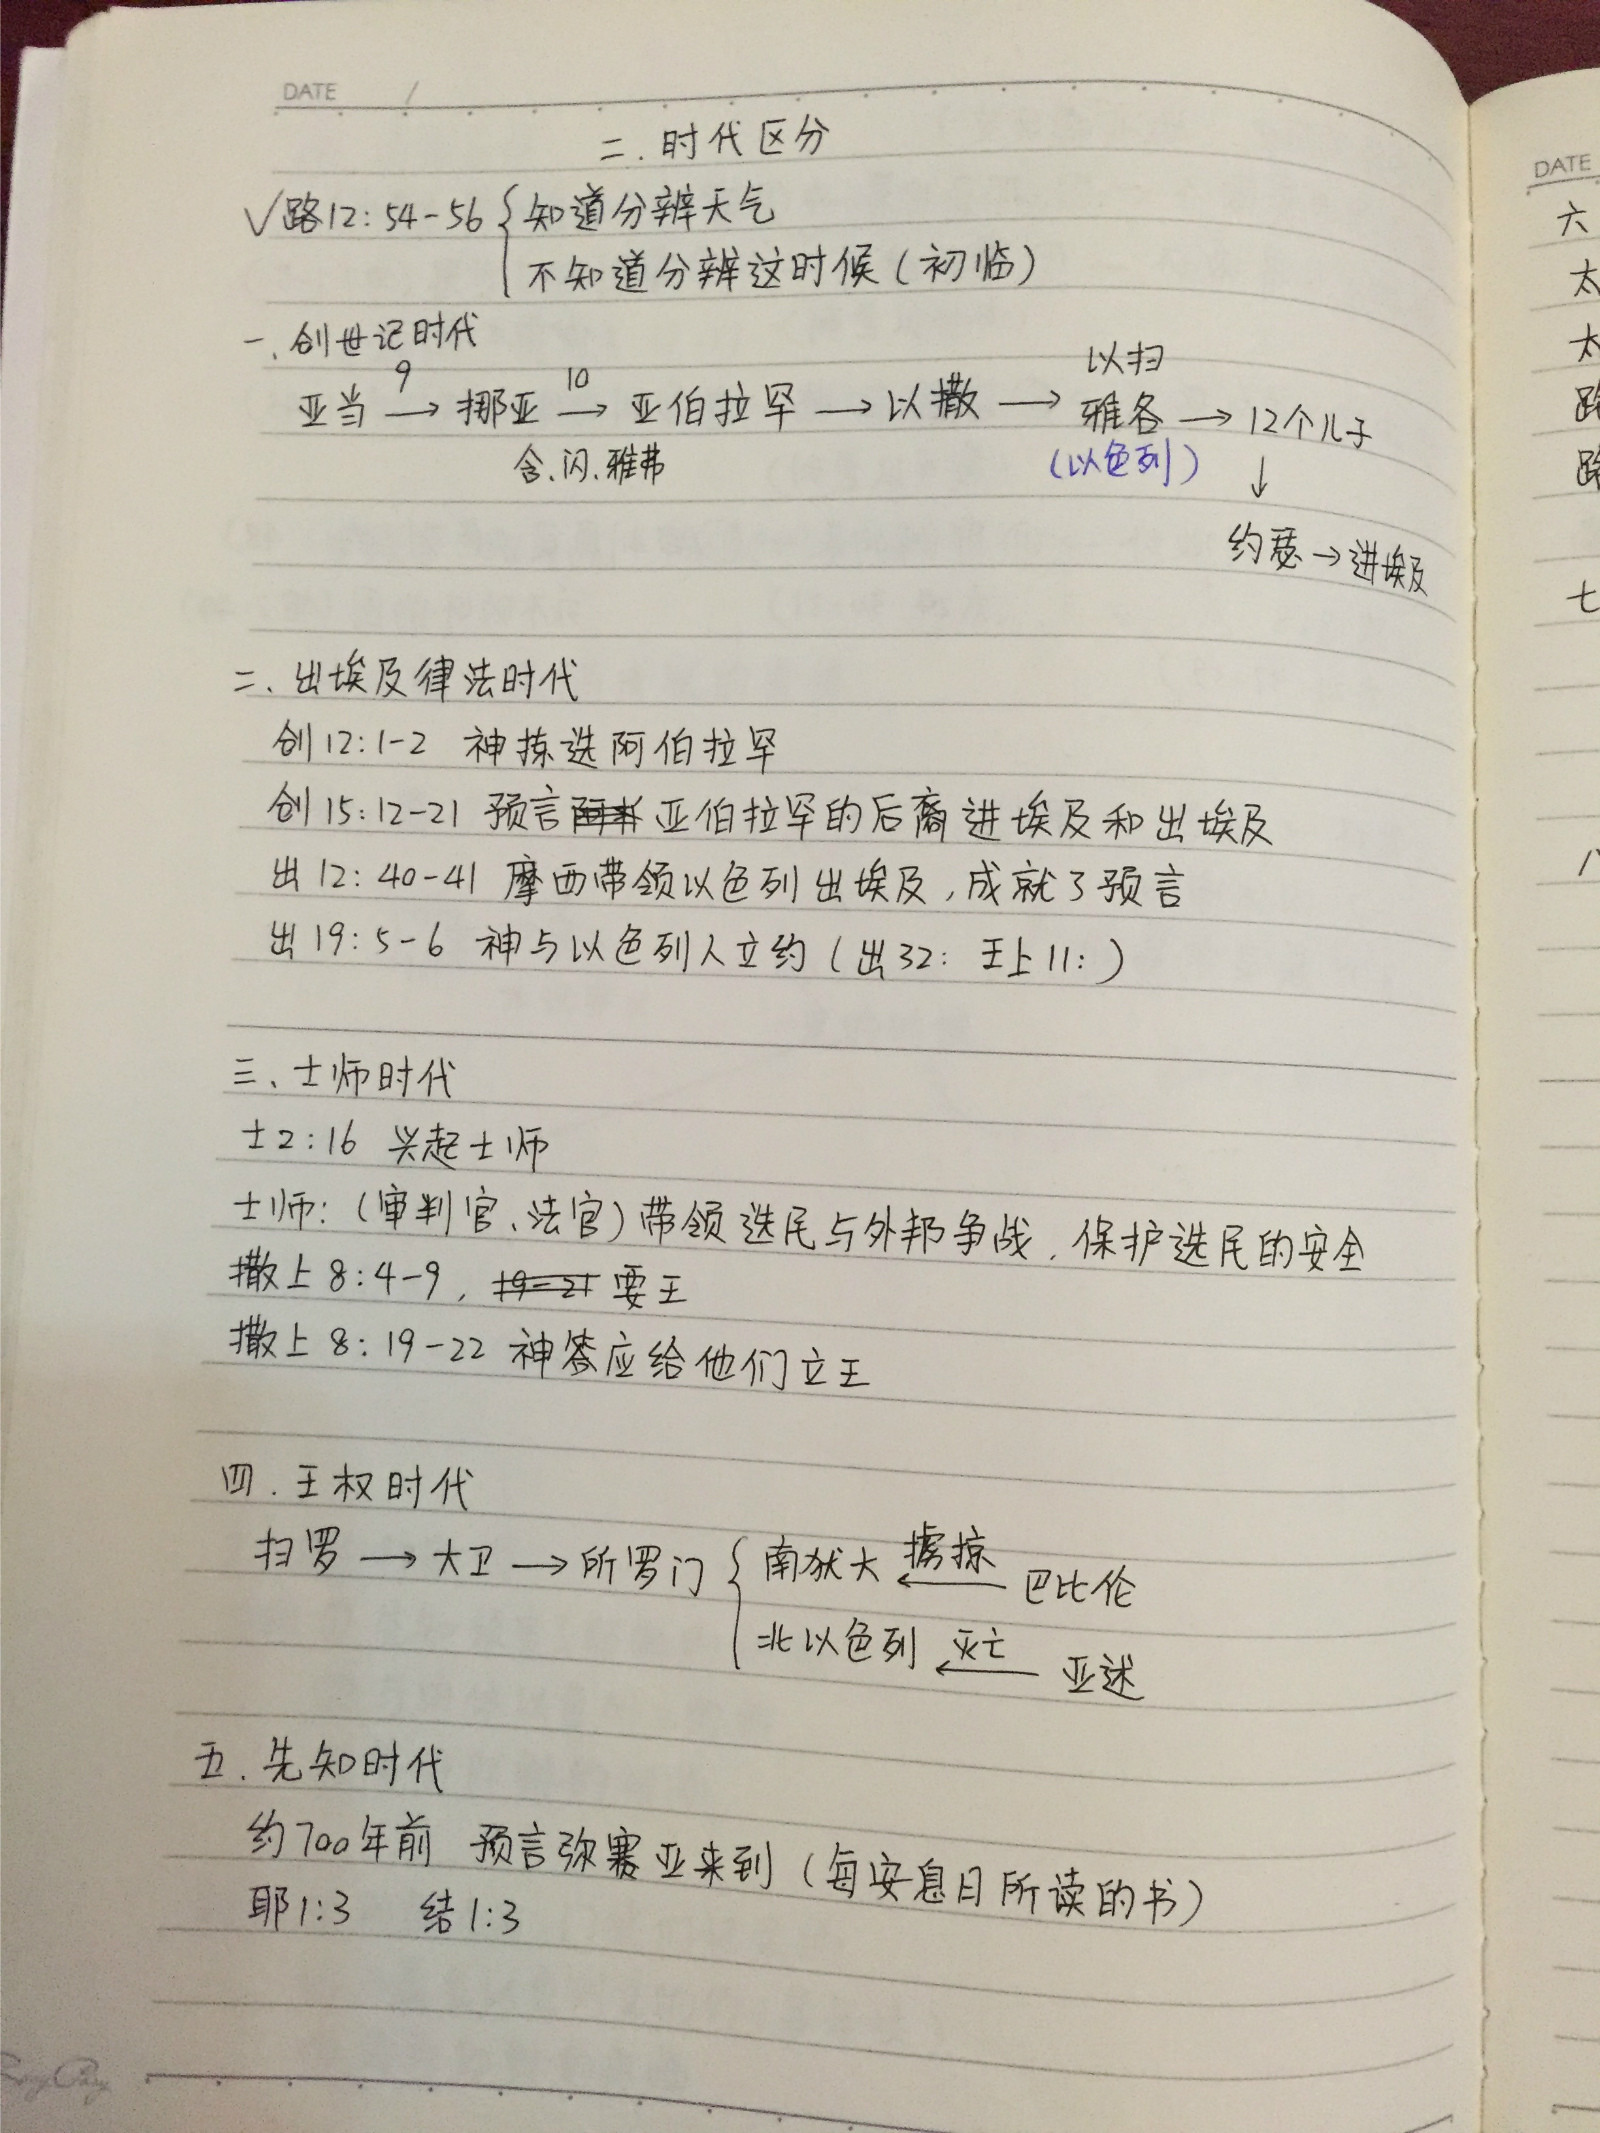 DATE /
二.时代区分
√路12:54-56 { 知道分辨天气
不知道分辨这时候(初临)
一、创世记时代
9 10 以扫
亚当 → 挪亚 → 亚伯拉罕 → 以撒 → 雅各 → 12个儿子
含、闪、雅弗 (以色列) ↓
约瑟→进埃及
二、出埃及律法时代
创12:1-2 神拣选阿伯拉罕
创15:12-21 预言亚伯拉罕的后裔进埃及和出埃及
出12:40-41 摩西带领以色列出埃及,成就了预言
出19:5-6 神与以色列人立约(出32: 王上11:)
三、士师时代
士2:16 兴起士师
士师:(审判官、法官)带领选民与外邦争战,保护选民的安全
撒上8:4-9, 19-21 要王
撒上8:19-22 神答应给他们立王
四.王权时代
扫罗 → 大卫 → 所罗门 { 南犹大 ←掳掠 巴比伦
北以色列 ←灭亡 亚述
五.先知时代
约700年前 预言弥赛亚来到(每安息日所读的书)
耶1:3 结1:3
DATE
六
太
太
路
路
七
八